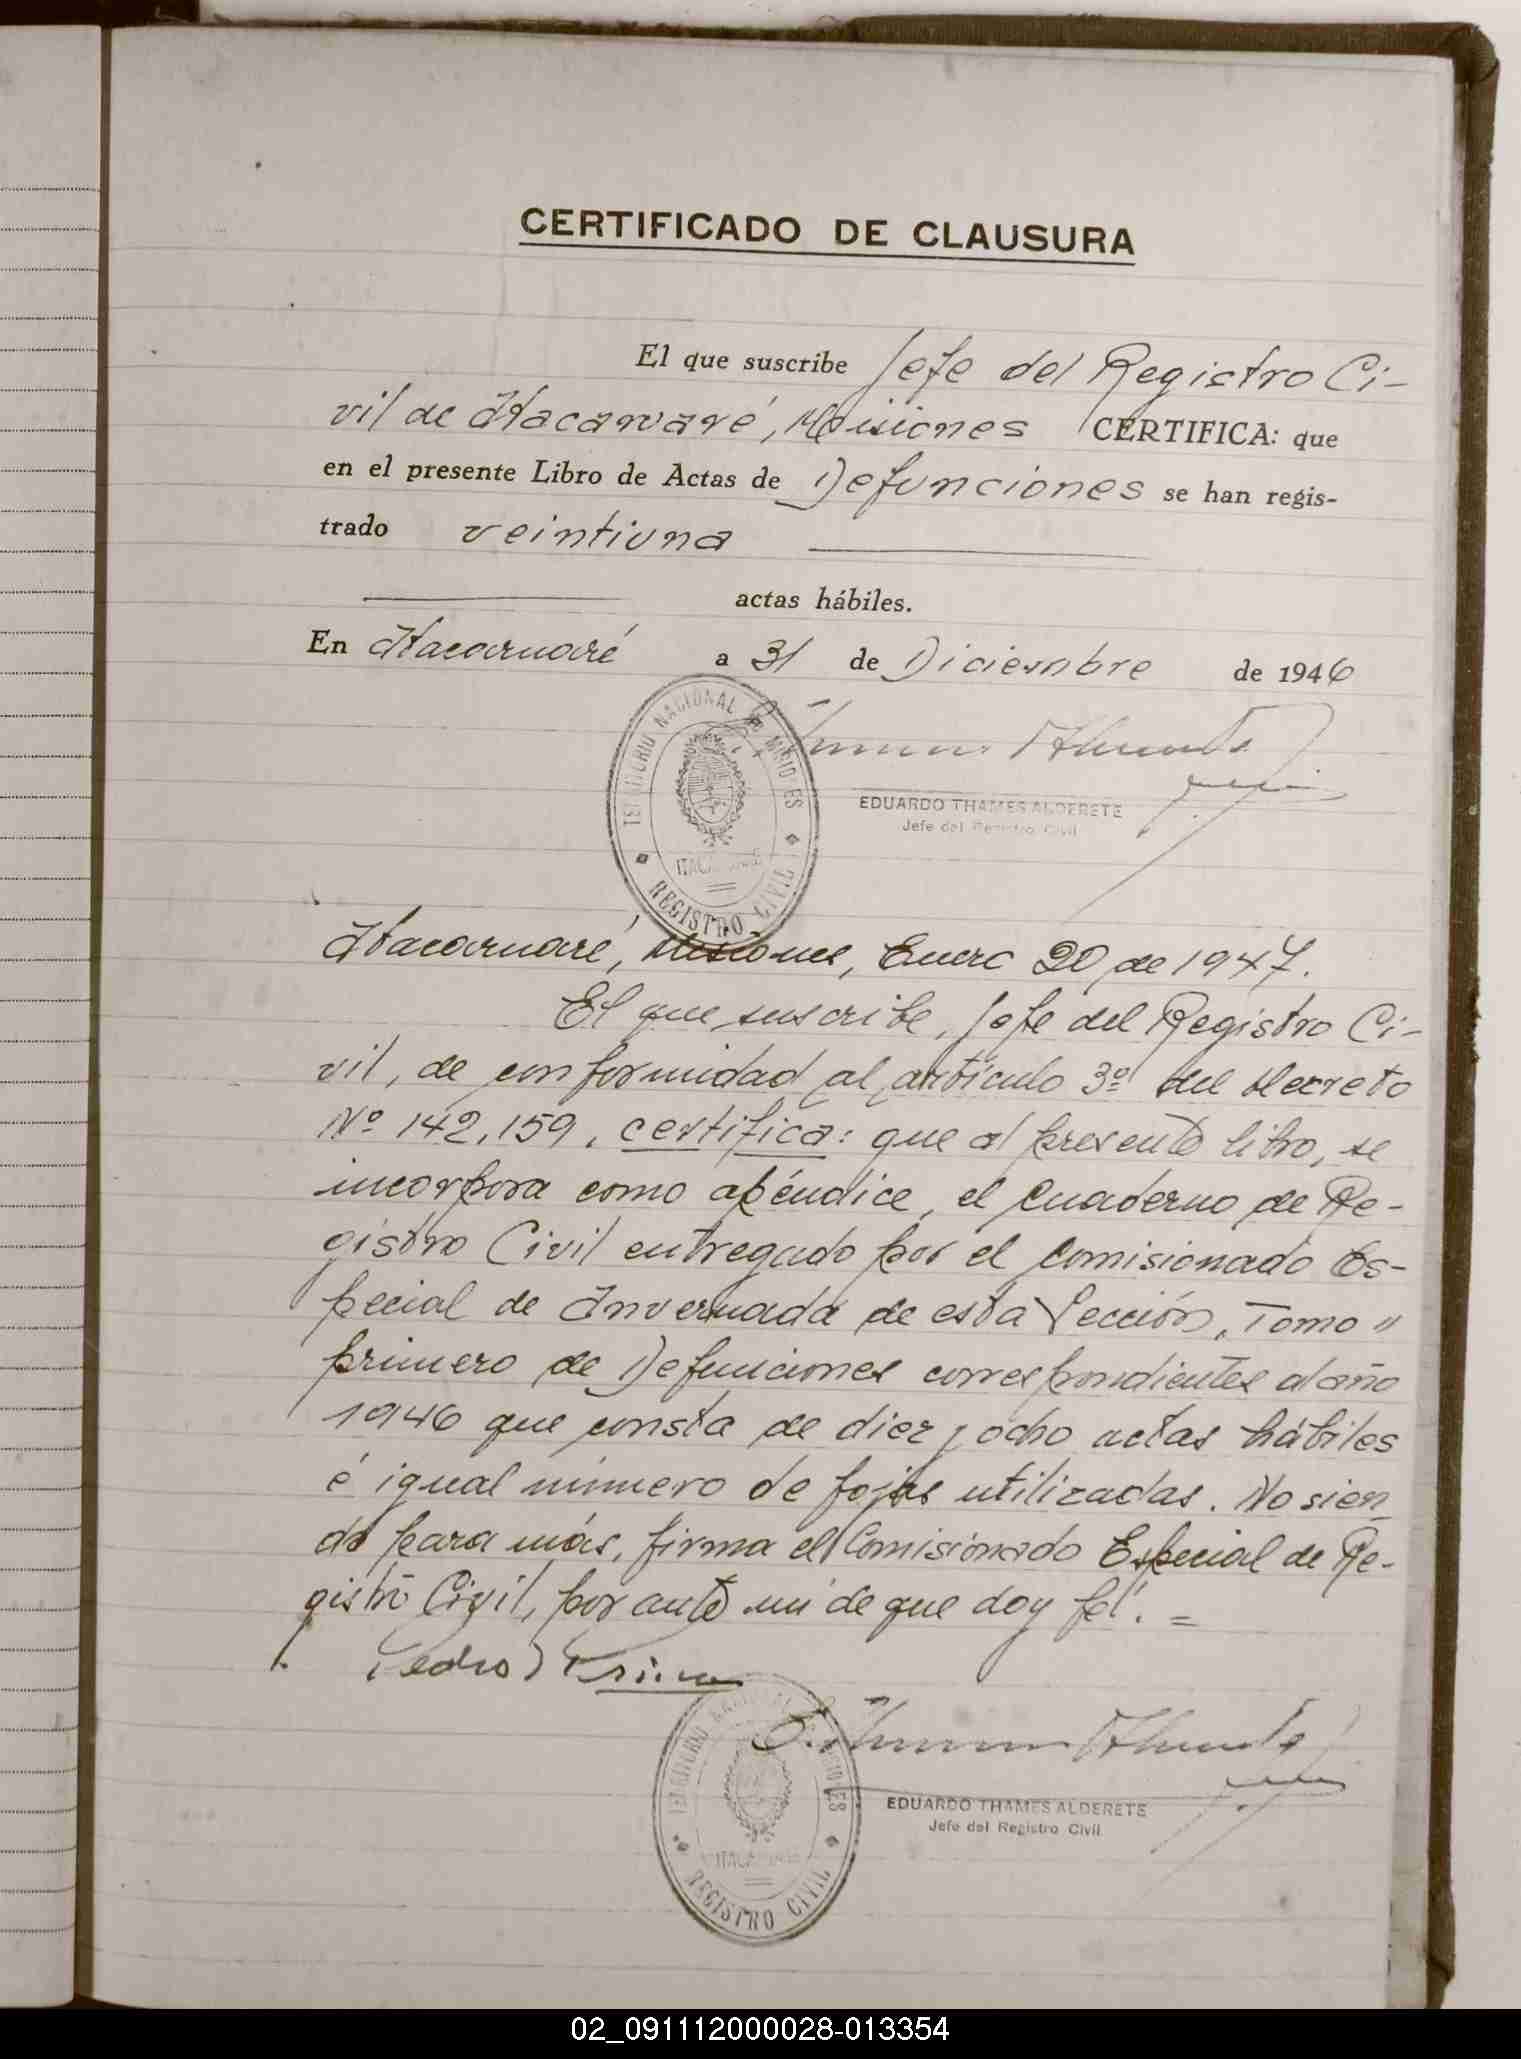 CERTIFICADO DE CLAUSURA
El que suscribe Jefe del Registro Ci-
vil de Itacaruaré, Misiones CERTIFICA: que
en el presente Libro de Actas de Defunciones se han regis-
trado veintiuna
actas hábiles.
En Itacaruaré a 31 de Diciembre de 1946
TERRITORIO NACIONAL DE MISIONES
ITACARUARÉ
REGISTRO CIVIL
EDUARDO THAMES ALDERETE
Jefe del Registro Civil
Itacaruaré, Misiones, Enero 20 de 1947.
El que suscribe, Jefe del Registro Ci-
vil, de conformidad al artículo 3º del decreto
Nº 142,159, certifica: que al presente libro, se
incorpora como apéndice, el Cuaderno de Re-
gistro Civil entregado por el Comisionado Es-
pecial de Invernada de esta Sección, Tomo "
primero de Defunciones correspondientes al año
1946 que consta de diez y ocho actas hábiles
é igual número de fojas utilizadas. No sien
do para más, firma el Comisionado Especial de Re-
gistro Civil, por ante mí de que doy fé. =
Pedro
TERRITORIO NACIONAL DE MISIONES
ITACARUARÉ
REGISTRO CIVIL
EDUARDO THAMES ALDERETE
Jefe del Registro Civil
02_091112000028-013354